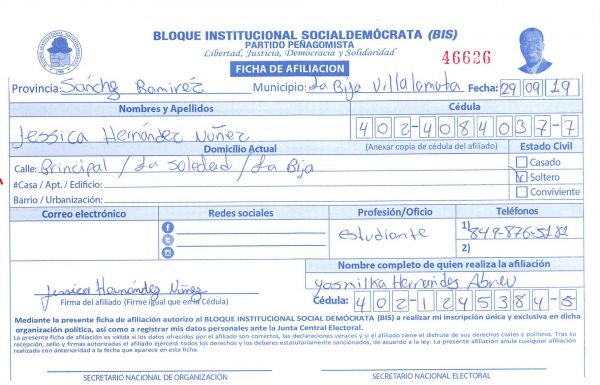 BLOQUE INSTITUCIONAL SOCIALDEMÓCRATA (BIS)
PARTIDO PEÑAGOMISTA
Libertad, Justicia, Democracia y Solidaridad
46626
FICHA DE AFILIACION
Provincia: Sánchez Ramirez Municipio: La Bija Villa la mata Fecha: 29 09 19
Nombres y Apellidos Cédula
Jessica Hernández Núñez 402-4084037-7
Domicilio Actual (Anexar copia de cédula del afiliado) Estado Civil
Calle: Principal / La Soledad / La Bija Casado
#Casa / Apt. / Edificio: Soltero
Barrio / Urbanización: Conviviente
Correo electrónico Redes sociales Profesión/Oficio Teléfonos
estudiante 1) 849-876-5182
2)
Nombre completo de quien realiza la afiliación
Jessica Hernández Núñez Yasnilka Hernandes Abreu
Firma del afiliado (Firme igual que en la Cédula) Cédula: 402-1245384-5
Mediante la presente ficha de afiliación autorizo al BLOQUE INSTITUCIONAL SOCIAL DEMÓCRATA (BIS) a realizar mi inscripción única y exclusiva en dicha
organización política, así como a registrar mis datos personales ante la Junta Central Electoral.
La presente ficha de afiliación es válida si los datos ofrecidos por el afiliado son correctos, las declaraciones veraces y si el afiliado tiene el disfrute de sus derechos civiles y políticos. Tras su
recepción, sello y firmas autorizadas el afiliado ejercerá todos los derechos y los deberes estatutariamente sancionados, de acuerdo a la ley. La presente afiliación anula cualquier afiliación
realizada con anterioridad a la fecha que aparece en esta ficha.
SECRETARIO NACIONAL DE ORGANIZACIÓN SECRETARIO NACIONAL ELECTORAL